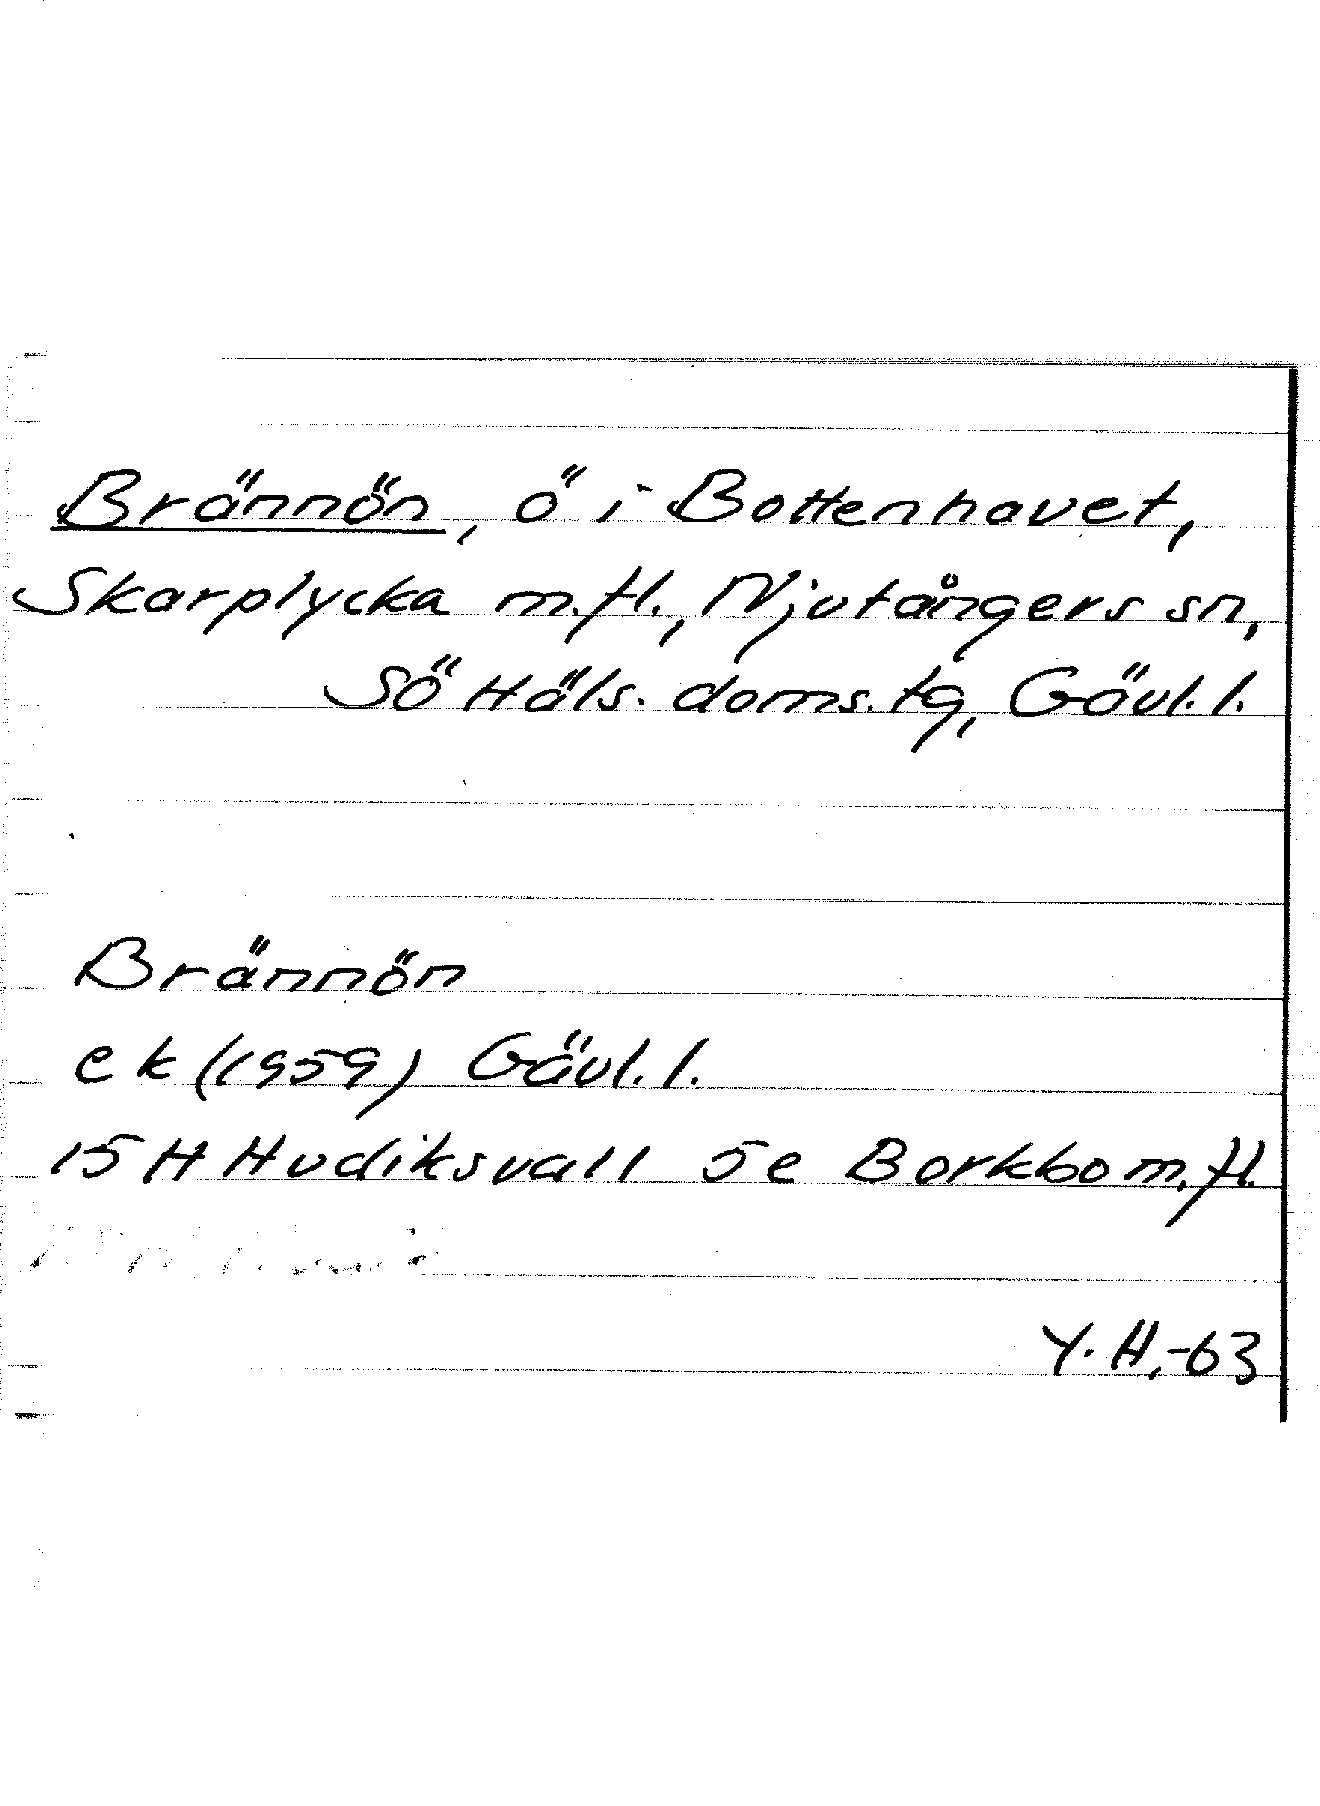 Brännön, ö i Bottenhavet,
Skarplycka m.fl., Njutångers sn,
SöHäls. doms. tg, Gävl. l.
Brännön
ek (1959) Gävl. l.
15 H Hudiksvall 5e Borkbo m.fl.
Y. H.-63